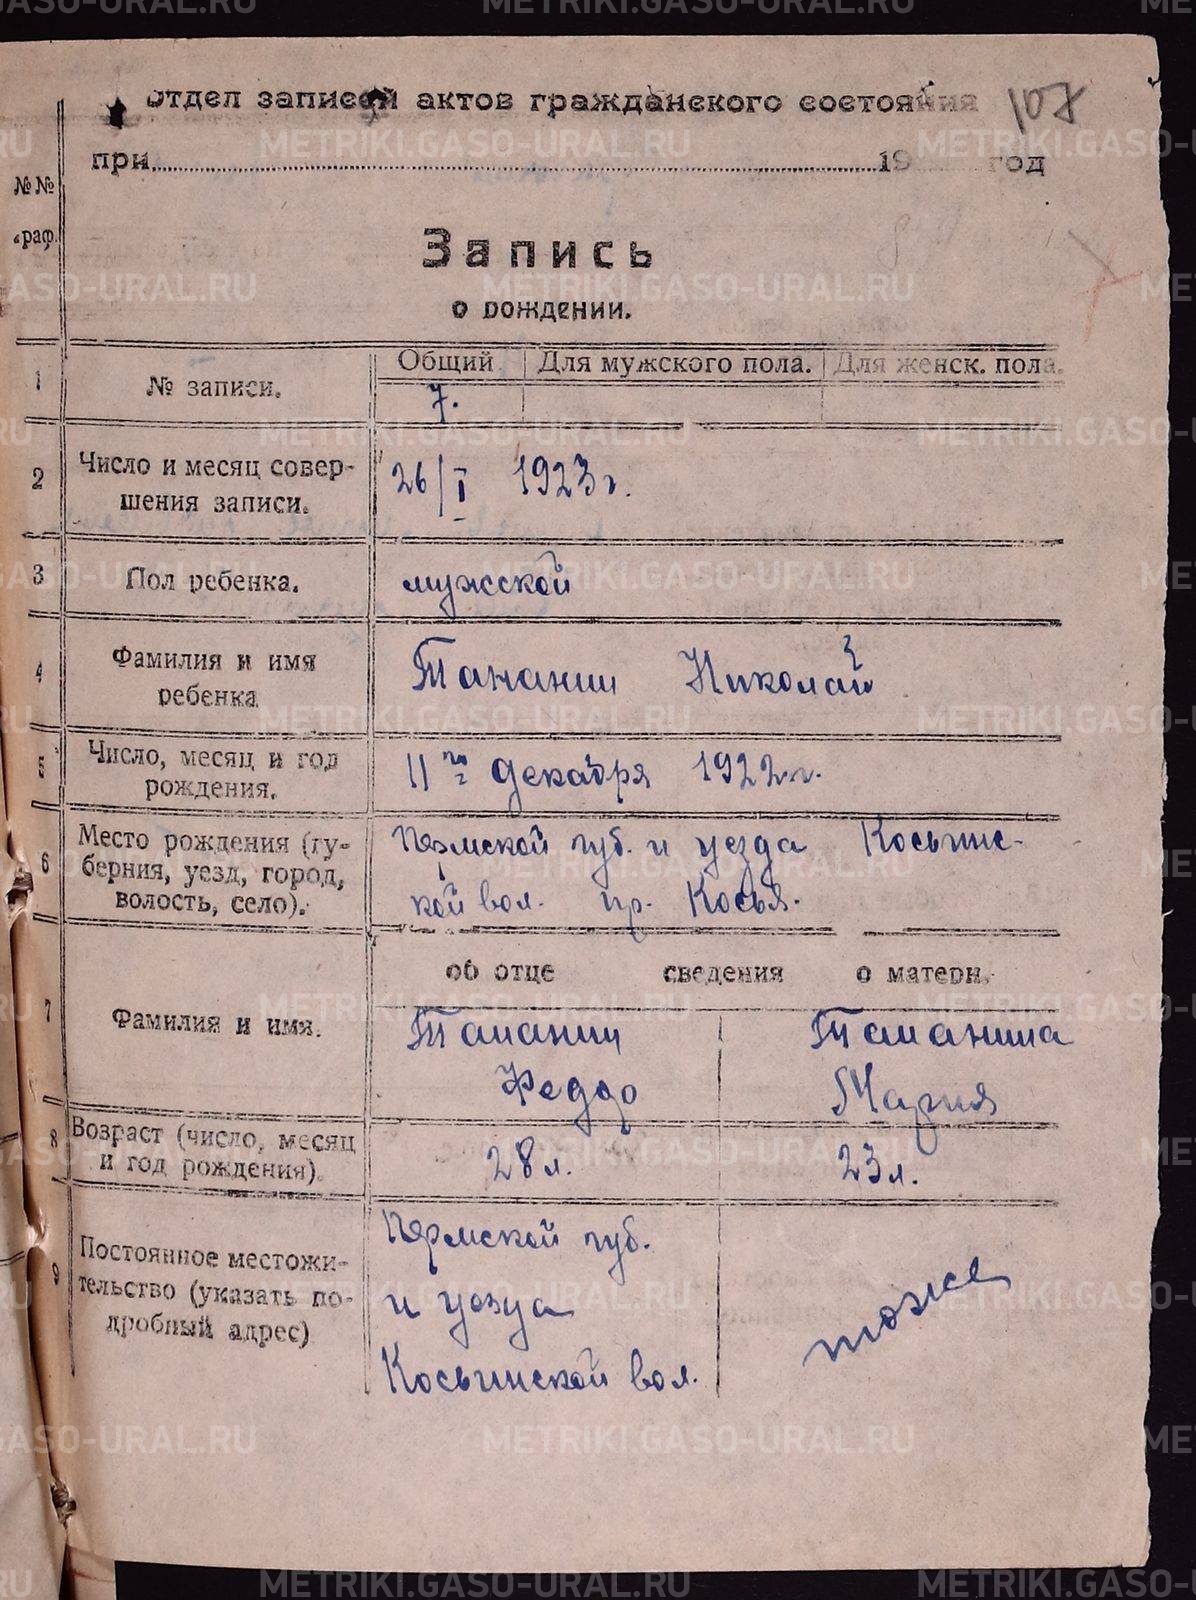 107
Отдел записей актов гражданского состояния
при 19 год
№№
граф.
Запись
о рождении.
Общий Для мужского пола. Для женск. пола.
1 № записи. 7.
2 Число и месяц совер-
шения записи. 26/I 1923 г.
3 Пол ребенка. мужской
4 Фамилия и имя
ребенка Тананин Николай
5 Число, месяц и год
рождения. 11го декабря 1922 г.
6 Место рождения (гу-
берния, уезд, город,
волость, село). Пермской губ. и уезда Косьинс-
кой вол. пр. Косья.
об отце сведения о матери.
7 Фамилия и имя. Тананин Тананина
Федор Мария
8 Возраст (число, месяц
и год рождения). 28 л. 23 л.
9 Постоянное местожи-
тельство (указать по-
дробный адрес) Пермской губ.
и уезда
Косьинской вол. тоже
METRIKI.GASO-URAL.RU